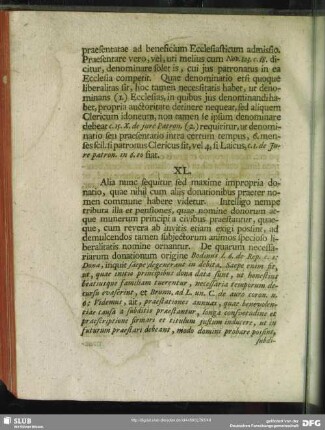 praesentatae ad beneficium Ecclesiasticum admissio.
Praesentare vero, vel, uti melius cum Nov. 123. c. 18. di-
citur, denominare solet is, cui jus patronatus in ea
Ecclesia competit. Quae denominatio etsi quoque
liberalitas sit, hoc tamen necessitatis habet, ut deno-
minans (1.) Ecclesias, in quibus jus denominandi ha-
bet, propria auctoritate detinere nequeat, sed aliquem
Clericum idoneum, non tamen se ipsum denominare
debeat c. 15. X. de jure Patron. (2.) requiritur, ut deno-
minatio seu praesentatio intra certum tempus, 6. men-
ses scil. si patronus Clericus sit, vel 4. si Laicus, c. 1. de Ju-
re patron. in 6.to fiat.
XL.
Alia nunc sequitur sed maxime impropria do-
natio, quae nihil cum aliis donationibus praeter no-
men commune habere videtur. Intelligo nempe
tributa illa et pensiones, quae nomine donorum ae-
que munerum principi a civibus praestantur, quae-
que, cum revera ab invitis etiam exigi possint, ad
demulcendos tamen subjectorum animos specioso li-
beralitatis nomine ornantur. De quarum necessita-
riarum donationum origine Bodinus l. 6. de Rep. c. 2;
Dona, inquit saepe degenerant in debita. Saepe enim fit,
ut, quae initio principibus dona data sunt, ut honestius
beatiusque familiam tuerentur, necessaria temporum de-
cursu evaserint, et Brunn. ad L. un. C. de auro coron. n.
6; Videmus, ait, praestationes annuas, quae benevolen-
tiae causa a subditis praestantur, longa consuetudine et
praescriptione firmari et titulum justum inducere, ut in
futurum praestari debeant, modo domini probare possint,
subdi-
SLUB
Wir führen Wissen.
gefördert von der
Deutschen Forschungsgemeinschaft
DFG